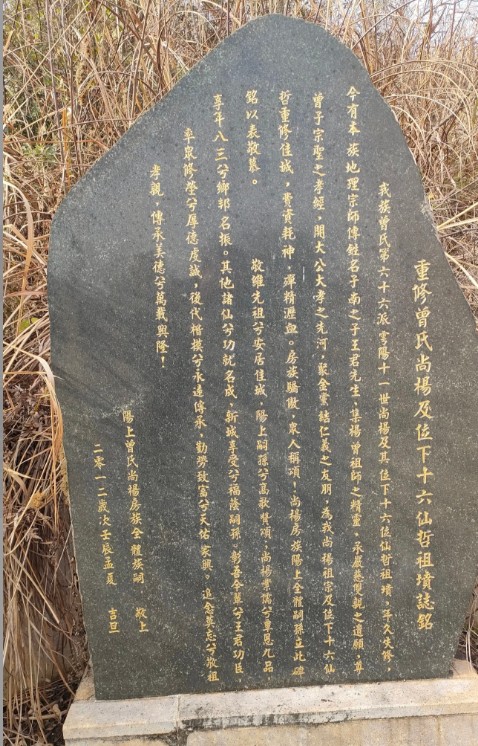 重修曾氏尚楊及位下十六仙哲祖墳誌銘
我族曾氏第六十六派雩陽十一世尚楊及其位下十六位仙哲祖墳，年久失修，
今有本族地理宗師傳鉎名子南之子王君先生，集楊曾祖師之精靈，承嚴慈雙親之遺願，尊
曾子宗聖之孝經，開大公大孝之先河，聚金蘭精仁義之友朋，為我尚楊祖宗及位下十六仙
哲重修佳城，費資耗神，殫精瀝血。房族驕傲，衆人稱頌！尚楊房族陽上全體嗣孫立此碑
銘以表敬慕。
敬維先祖兮安居佳城，陽上嗣孫兮萬歌贊頌，尚楊業儒兮皇恩九品，
享年八三兮鄉邦名振。其他諸仙兮功就名成，新城享受兮福蔭嗣孫，彰善令慕兮王君功臣，
率衆修塋兮厚德虔誠，後代楷模兮永遠傳承，勤勞致富兮天佑家興。追念莫忘兮敬祖
孝親，傳承美德兮萬載興隆！
陽上曾氏尚楊房族全體族嗣 敬上
二零一二歲次壬辰孟夏 吉旦